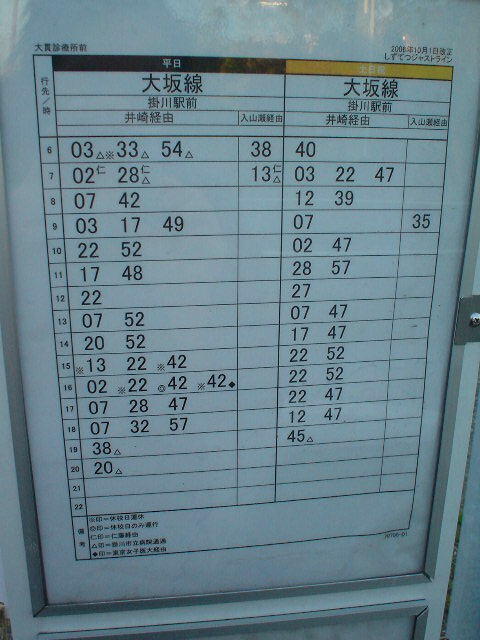 大貫診療所前
2006年10月1日改正
しずてつジャストライン
行先／時 平日 土日祝
大坂線 大坂線
掛川駅前 掛川駅前
井崎経由 入山瀬経由 井崎経由 入山瀬経由
6 03△ ※33△ 54△ 38 40
7 02仁 28仁△ 13仁△ 03 22 47
8 07 42 12 39
9 03 17 49 07 35
10 22 52 02 47
11 17 48 28 57
12 22 27
13 07 52 07 47
14 20 52 17 47
15 ※13 22 ※42 22 52
16 02 ※22 ◎42 ※42◆ 22 52
17 07 28 47 22 47
18 07 32 57 12 47
19 38△ 45△
20 20△
21
22
備考
※印=休校日運休
◎印=休校日のみ運行
仁印=仁藤経由
△印=掛川市立病院通過
◆印=東京女子医大経由